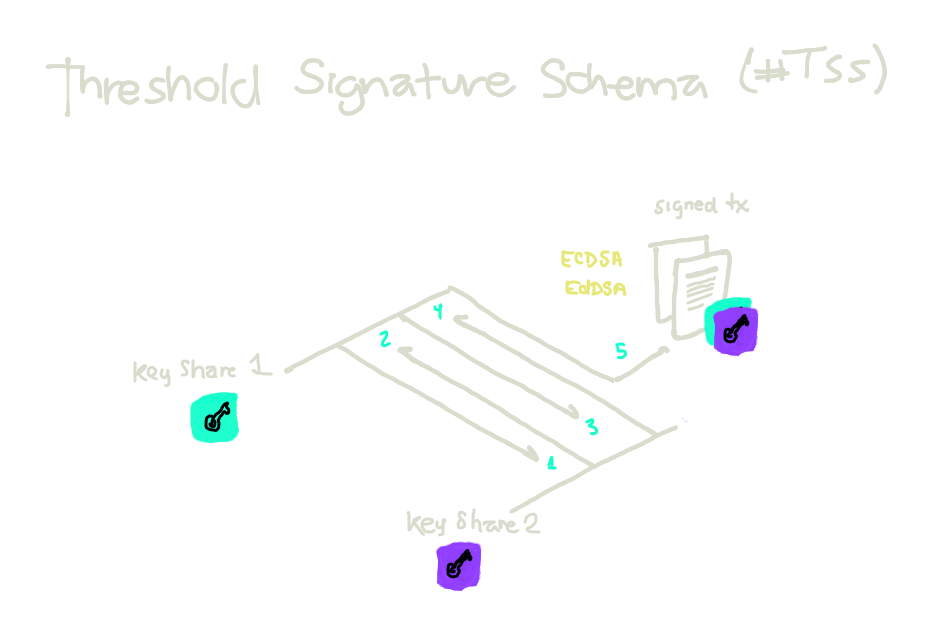 Threshold Signature Schema (#TSS)
signed tx
ECDSA
EdDSA
4
2
5
key share 1
3
1
key share 2